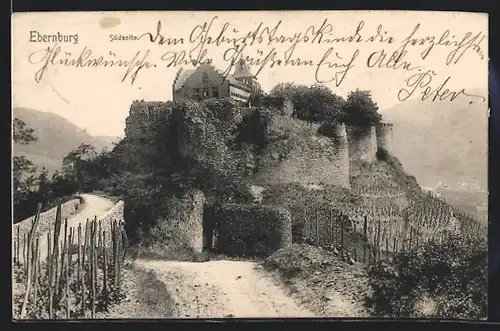 Ebernburg
Südseite.
Dem Geburtstagskinde die herzlichen
Glückwünsche! Grüßen Euch Alle,
Peter